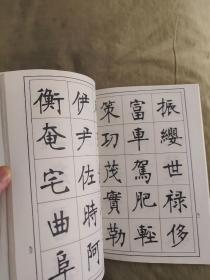 振纓世禄侈
富車駕肥輕
策功茂實勒
伊尹佐時阿
衡奄宅曲阜